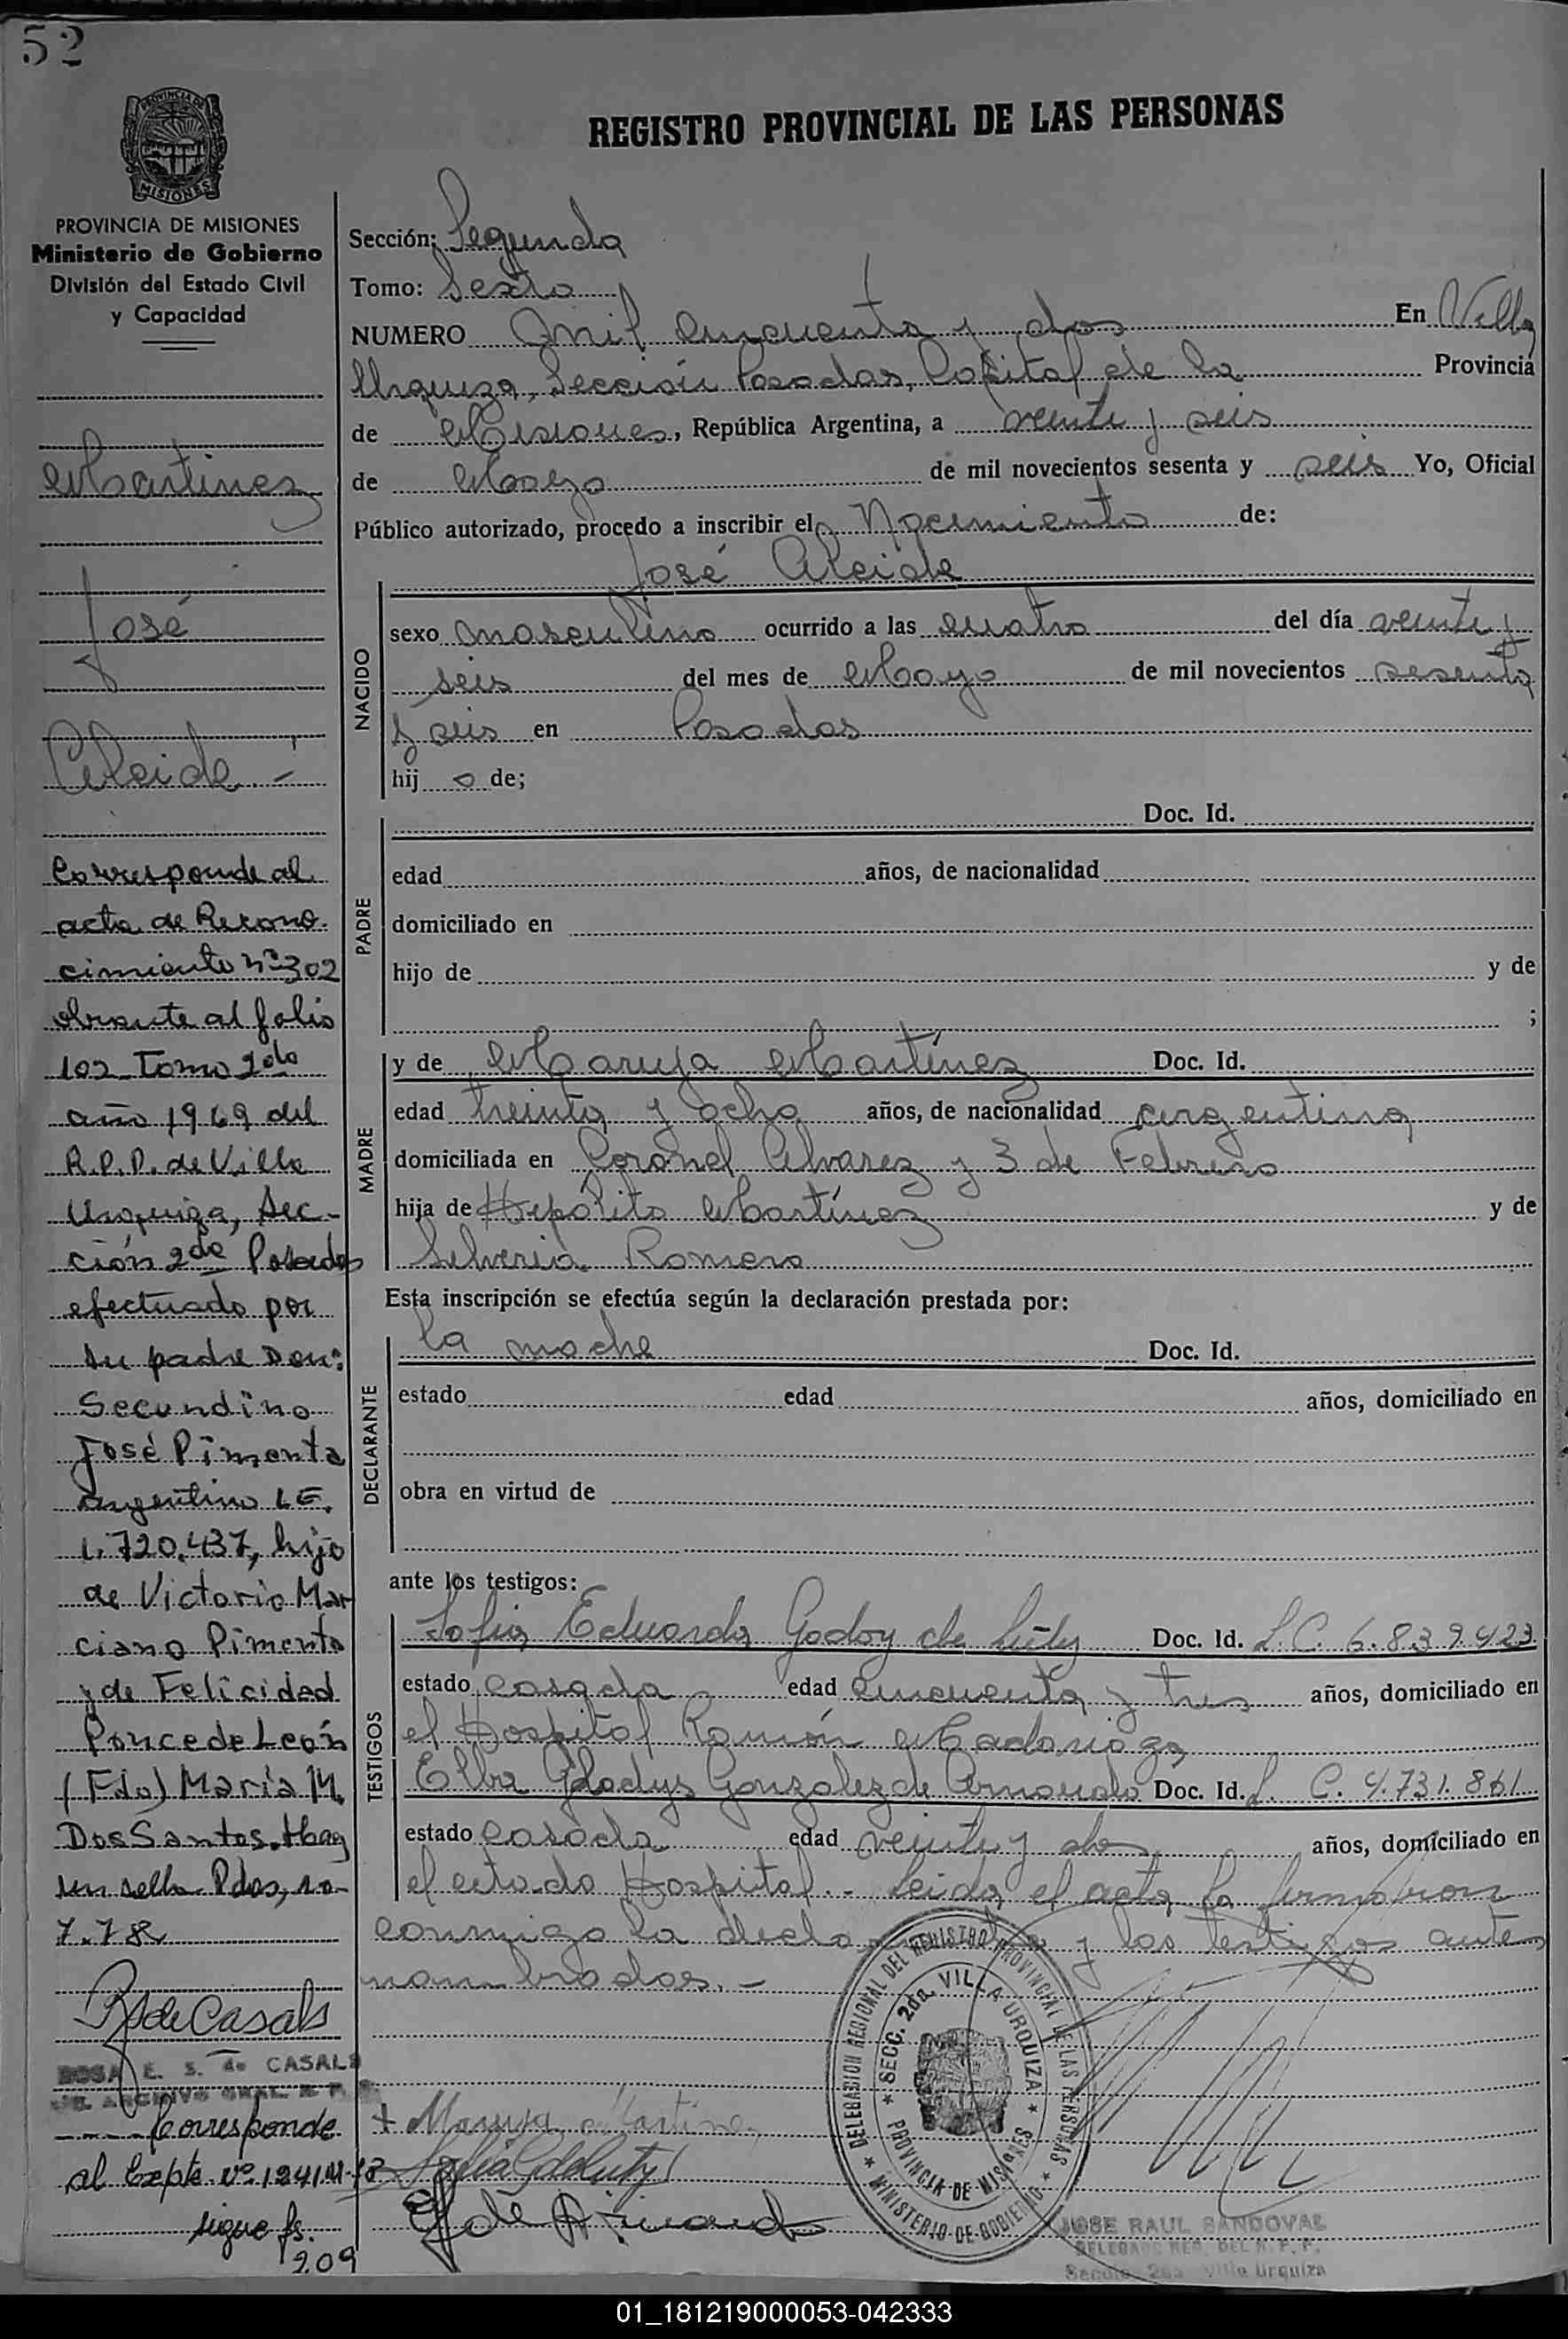 52
PROVINCIA DE MISIONES
PROVINCIA DE MISIONES
Ministerio de Gobierno
División del Estado Civil
y Capacidad
Martinez
José
Alcide.-
Corresponde al
acta de Recono-
cimiento Nº 302
obrante al folio
102 Tomo 2do
año 1969 del
R.P.P. de Villa
Urquiza, Sec-
ción 2da Posadas
efectuado por
su padre Don:
Secundino
José Pimenta
argentino L.E.
1.720.437, hijo
de Victorio Mar
ciano Pimenta
y de Felicidad
Ponce de León
(Fdo) María M.
Dos Santos. Hay
un sello Pdas, 10-
7.78
R S de Casals
ROSA E. S. de CASALS
Corresponde
al Expte. nº 1241
sigue fs.
209
REGISTRO PROVINCIAL DE LAS PERSONAS
Sección: Segunda
Tomo: Sexto
NUMERO Mil cincuenta y dos En Villa
Urquiza, Sección Posadas, Capital de la Provincia
de Misiones, República Argentina, a veinte y seis
de Mayo de mil novecientos sesenta y seis Yo, Oficial
Público autorizado, procedo a inscribir el Nacimiento de:
José Alcide
NACIDO
sexo masculino ocurrido a las cuatro del día veinte y
seis del mes de Mayo de mil novecientos sesenta
y seis en Posadas
hij o de;
PADRE
Doc. Id.
edad años, de nacionalidad
domiciliado en
hijo de y de
;
MADRE
y de Maruja Martínez Doc. Id.
edad treinta y ocho años, de nacionalidad argentina
domiciliada en Coronel Alvarez y 3 de Febrero
hija de Hipólito Martínez y de
Silveria Romero
Esta inscripción se efectúa según la declaración prestada por:
DECLARANTE
la madre Doc. Id.
estado edad años, domiciliado en
obra en virtud de
ante los testigos:
TESTIGOS
Sofia Eduarda Godoy de Doc. Id. L.C. 6.839.423
estado casada edad cincuenta y tres años, domiciliado en
el Hospital Ramón Madariaga
Elba Gladys Gonzalez de Doc. Id. L. C. 4.731.861
estado casada edad veinte y dos años, domiciliado en
el citado Hospital.- Leida el acta la firmaron
conmigo la declarante y los testigos antes
nombrados.-
DELEGACION REGIONAL DEL REGISTRO PROVINCIAL DE LAS PERSONAS
SECC. 2da. VILLA URQUIZA
PROVINCIA DE MISIONES
MINISTERIO DE GOBIERNO
+ Maruja Martinez
JOSE RAUL SANDOVAL
DELEGADO REG. DEL R. P. P.
Sección 2da. Villa Urquiza
01_181219000053-042333